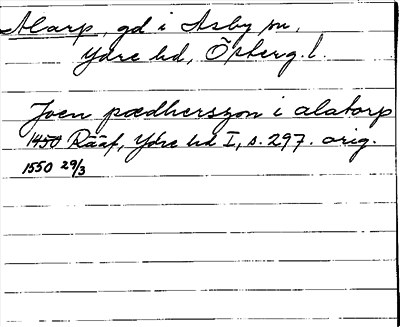 Alarp, gd i Asby sn,
Ydre hd, Österg. l.
Joen pædherszon i alatorp
1450 Rääf, Ydre hd I, s. 297. orig.
1550 29/3